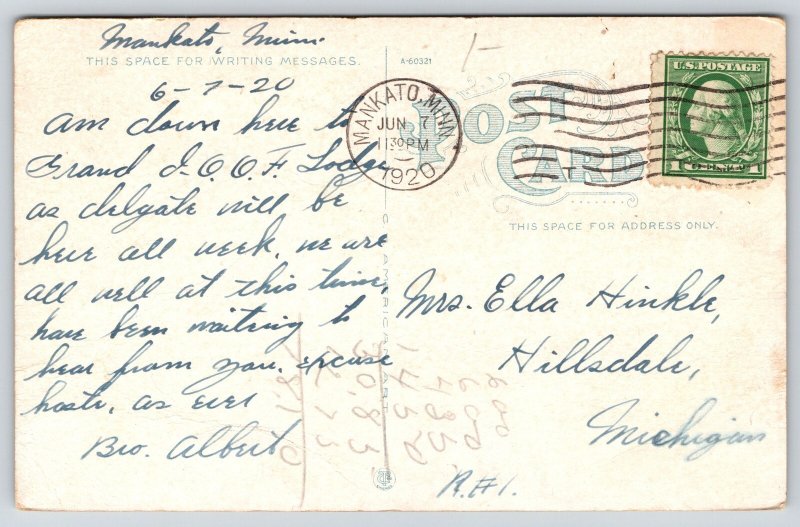 Mankato, Minn.
THIS SPACE FOR WRITING MESSAGES.
6-7-20
Am down here to
Grand I.O.O.F. Lodge
as delgate will be
here all week. we are
all well at this time,
have been waiting to
hear from you. excuse
haste, as ever
Bro. Albert
A-60321
POST
CARD
THIS SPACE FOR ADDRESS ONLY.
MANKATO, MINN.
JUN 7
1130 PM
1920
U.S. POSTAGE
1 CENTS 1
Mrs. Ella Hinkle,
Hillsdale,
Michigan
R.#1.